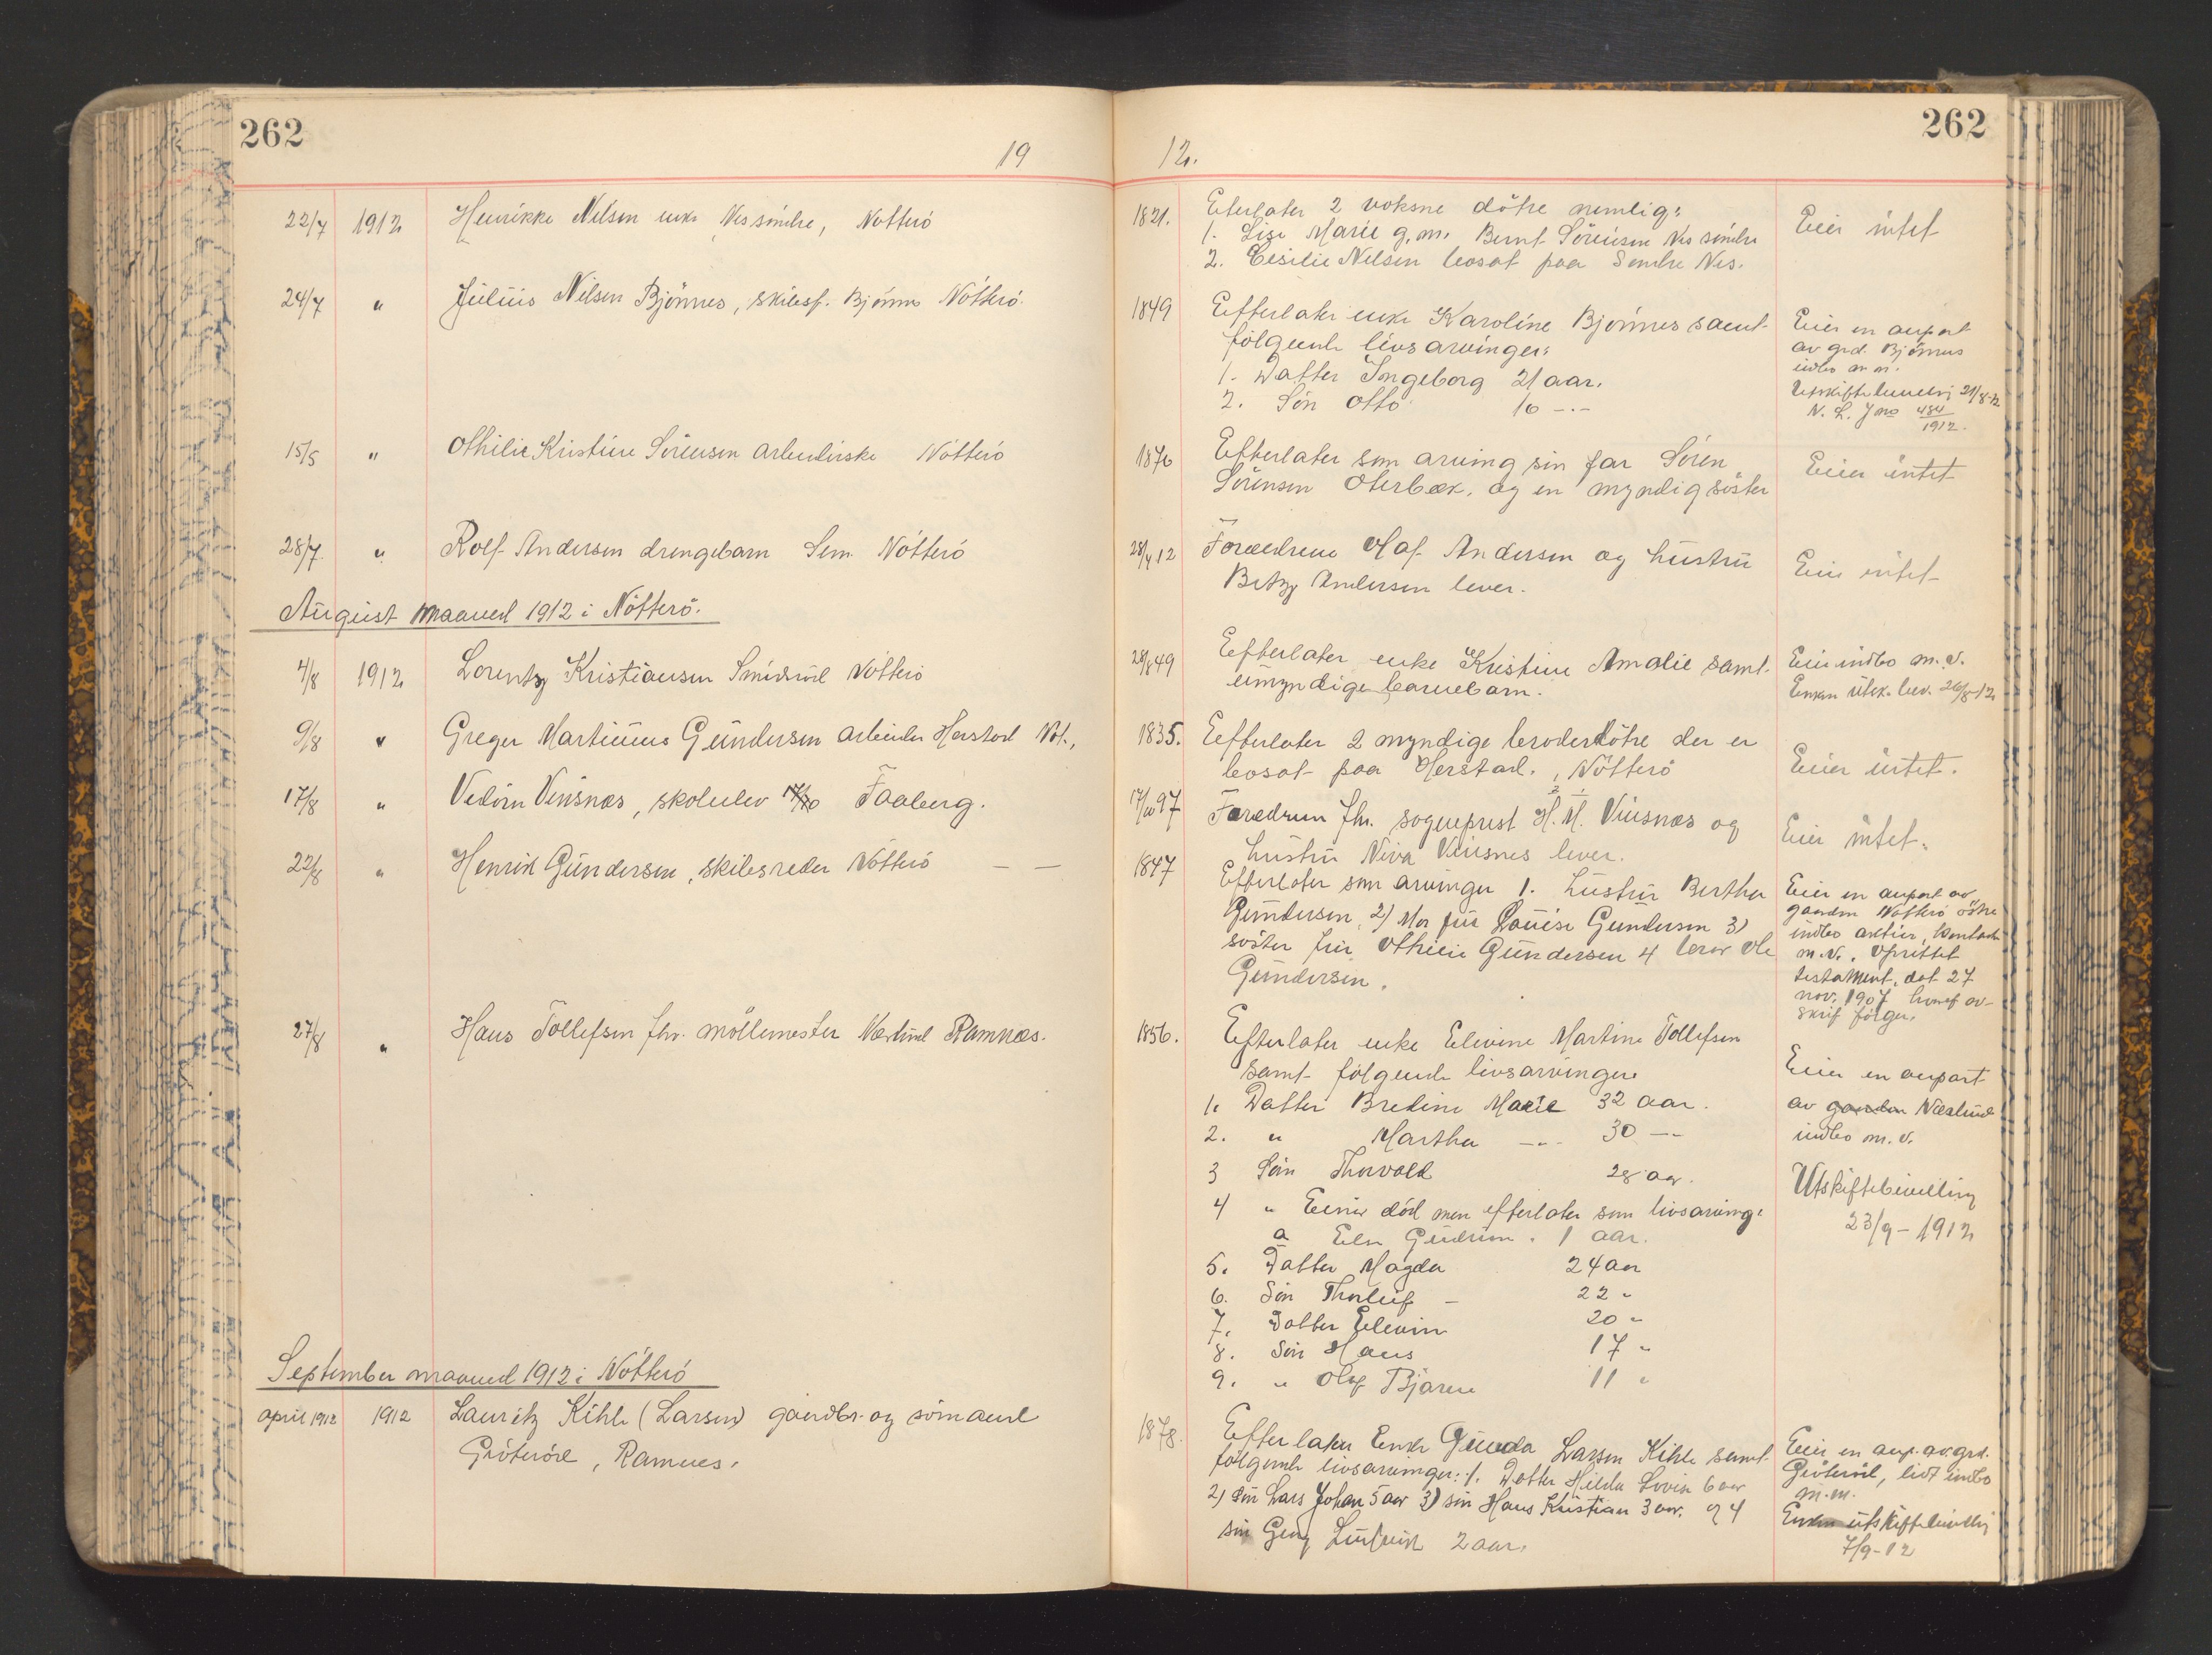 262
262
19
12.
22/7 1912 Henrikke Nilsen enke Nes söndre, Nötterö
1821. Eterlater 2 voksne dötre nemlig:
1. Lise Marie g.m. Bernt Sörensen Nes söndre
2. Cesilie Nilsen bosat paa Söndre Nes.
Eier intet
24/7 " Julius Nilsen Bjönnes, skibsf. Bjönnes Nötterö.
1849 Eefterlater enke Karoline Bjönnes samt
fölgende livsarvinger:
1. Datter Ingeborg 21 aar.
2. Sön Otto 16 -.-
Eier en anpart
av grd. Bjönnes
indbo m m.
Utskiftebevillig 21/8-12
N. L. J no 484/1912.
15/5 " Othilie Kristine Sörensen arbeiderske Nötterö
1876 Eefterlater som arving sin far Sören
Sörensen Oterbæk. og en myndig söster
Eeier intet
28/7 " Rolf Andersen drengebarn Sem Nötterö
28/4 12 Foræedrene Olaf Andersen og hustru
Betzy Andersen lever.
Eeie intet
August maaned 1912 i Nötterö.
4/8 1912 Lorentz Kristiansen Smidsröd Nötterö
28/8 49 Eefterlater enke Kristine Amalie samt
umyndige barnebarn.
Eeie indbo m.v.
Enken utsk. bev. 26/8-12
9/8 " Greger Martinius Gundersen arbeider Herstad Nöt.,
1835. Eefterlater 2 myndige broderdötre der er
bosat paa Herstad., Nötterö
Eeier intet.
17/8 " Vedörn Vinsnæs, skoleelev Faaberg.
17/10 97 Foreædrene fhv. sogneprest H. H. Vinsnæs og
hustru Neva Vinsnes lever.
Eeier intet.
22/8 " Henrik Gundersen, skibsreder Nötterö — —
1847 Efterlater som arvinger 1. hustru Bertha
Gundersen, 2) Mor fru Louise Gundersen 3)
söster fru Othilie Gundersen 4 bror Ole
Gundersen.
Eeier en anpart av
gaarden Nötterö östre
indbo aktier, kontant
m.v. Oprettet
testament. dat 27
nov. 1907 hvoraf av-
skrif fölger.
27/8 " Hans Tollefsen fhv. möllemester Ramnæs.
1856. Efterlater enke Elevine Martine Tollefsen
samt fölgende livsarvinger
1. Datter Bredine Marie 32 aar.
2. " Martha -.- 30 -.-
3 Sön Thorvald 28 aar.
4 " Einar död men efterlater som livsarving:
a Else Gudrun. 1 aar.
5. Datter Magda 24 aar
6. Sön Thorleif - 22 "
7. Datter Elevine 20 "
8. Sön Hans 17 "
9. " Olaf Bjarne 11 "
Eeier en anpart
av gaarden
indbo m.v.
Utskiftebevilling
23/9 - 1912
September maaned 1912 i Nötterö
april 1912 1912 Lauritz Kihle (Larsen) gaardbr. og sömand
Gröteröd, Ramnes.
1878. Efterlater Enke Gunda Larsen Kihle samt
fölgende livsarvinger: 1. Datter Hilda Lovise 6 aar
2) sön Lars Johan 5 aar 3) sön Hans Kristian 3 aar. og 4
sön Georg Ludvik 2 aar.
Eeier en anp. av grd.
Gröteröd, lidt indbo
m.m.
Enken utskiftebevillig
7/9-12